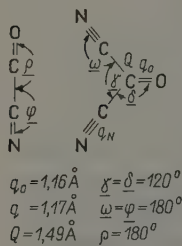 N
O
C
ρ
C
φ
N
N
C
ω
Q
q₀
γ
C
O
δ
C
q_N
N
q₀ = 1,16 Å
γ = δ = 120°
q = 1,17 Å
ω = φ = 180°
Q = 1,49 Å
ρ = 180°